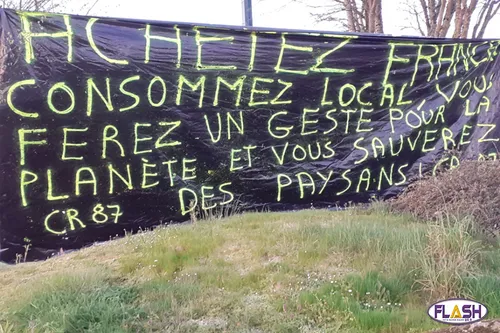 ACHETEZ FRANC
CONSOMMEZ LOCAL VOUS
FEREZ UN GESTE POUR LA
PLANÈTE ET VOUS SAUVEREZ
CR 87 DES PAYSANS !
FLASH